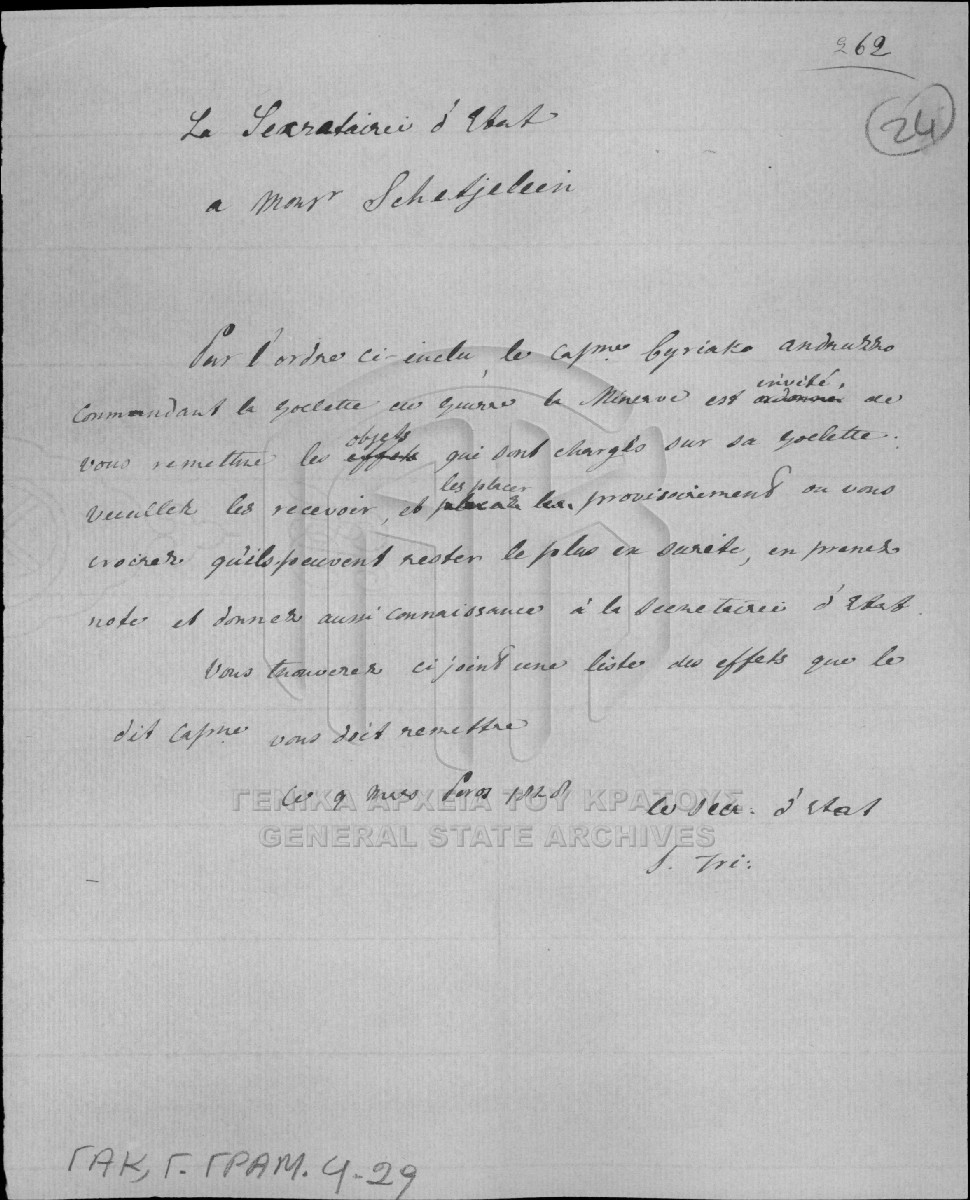 262
24
La Secretairie d'Etat
a Monsr Schetjelein
Par l'ordre ci-inclu, le capne Cyriako andruzzo
commandant la goelette de guerre la Minerve est ordonné invité, de
vous remettre les effets objets qui sont chargés sur sa goelette.
veuillez les recevoir, et placer les les placer provisoirement ou vous
croirez qu'ils peuvent rester le plus en sureté, en prenez
note et donnez aussi connaissance à la secretairie d'Etat.
Vous trouverez ci joint une liste des effets que le
dit capne vous doit remettre
ce 9 mars Poros 1828
le Secr: d'Etat
S. Tri:
ΓΕΝΙΚΑ ΑΡΧΕΙΑ ΤΟΥ ΚΡΑΤΟΥΣ
GENERAL STATE ARCHIVES
ΓΑΚ, Γ. ΓΡΑΜ. 4-29